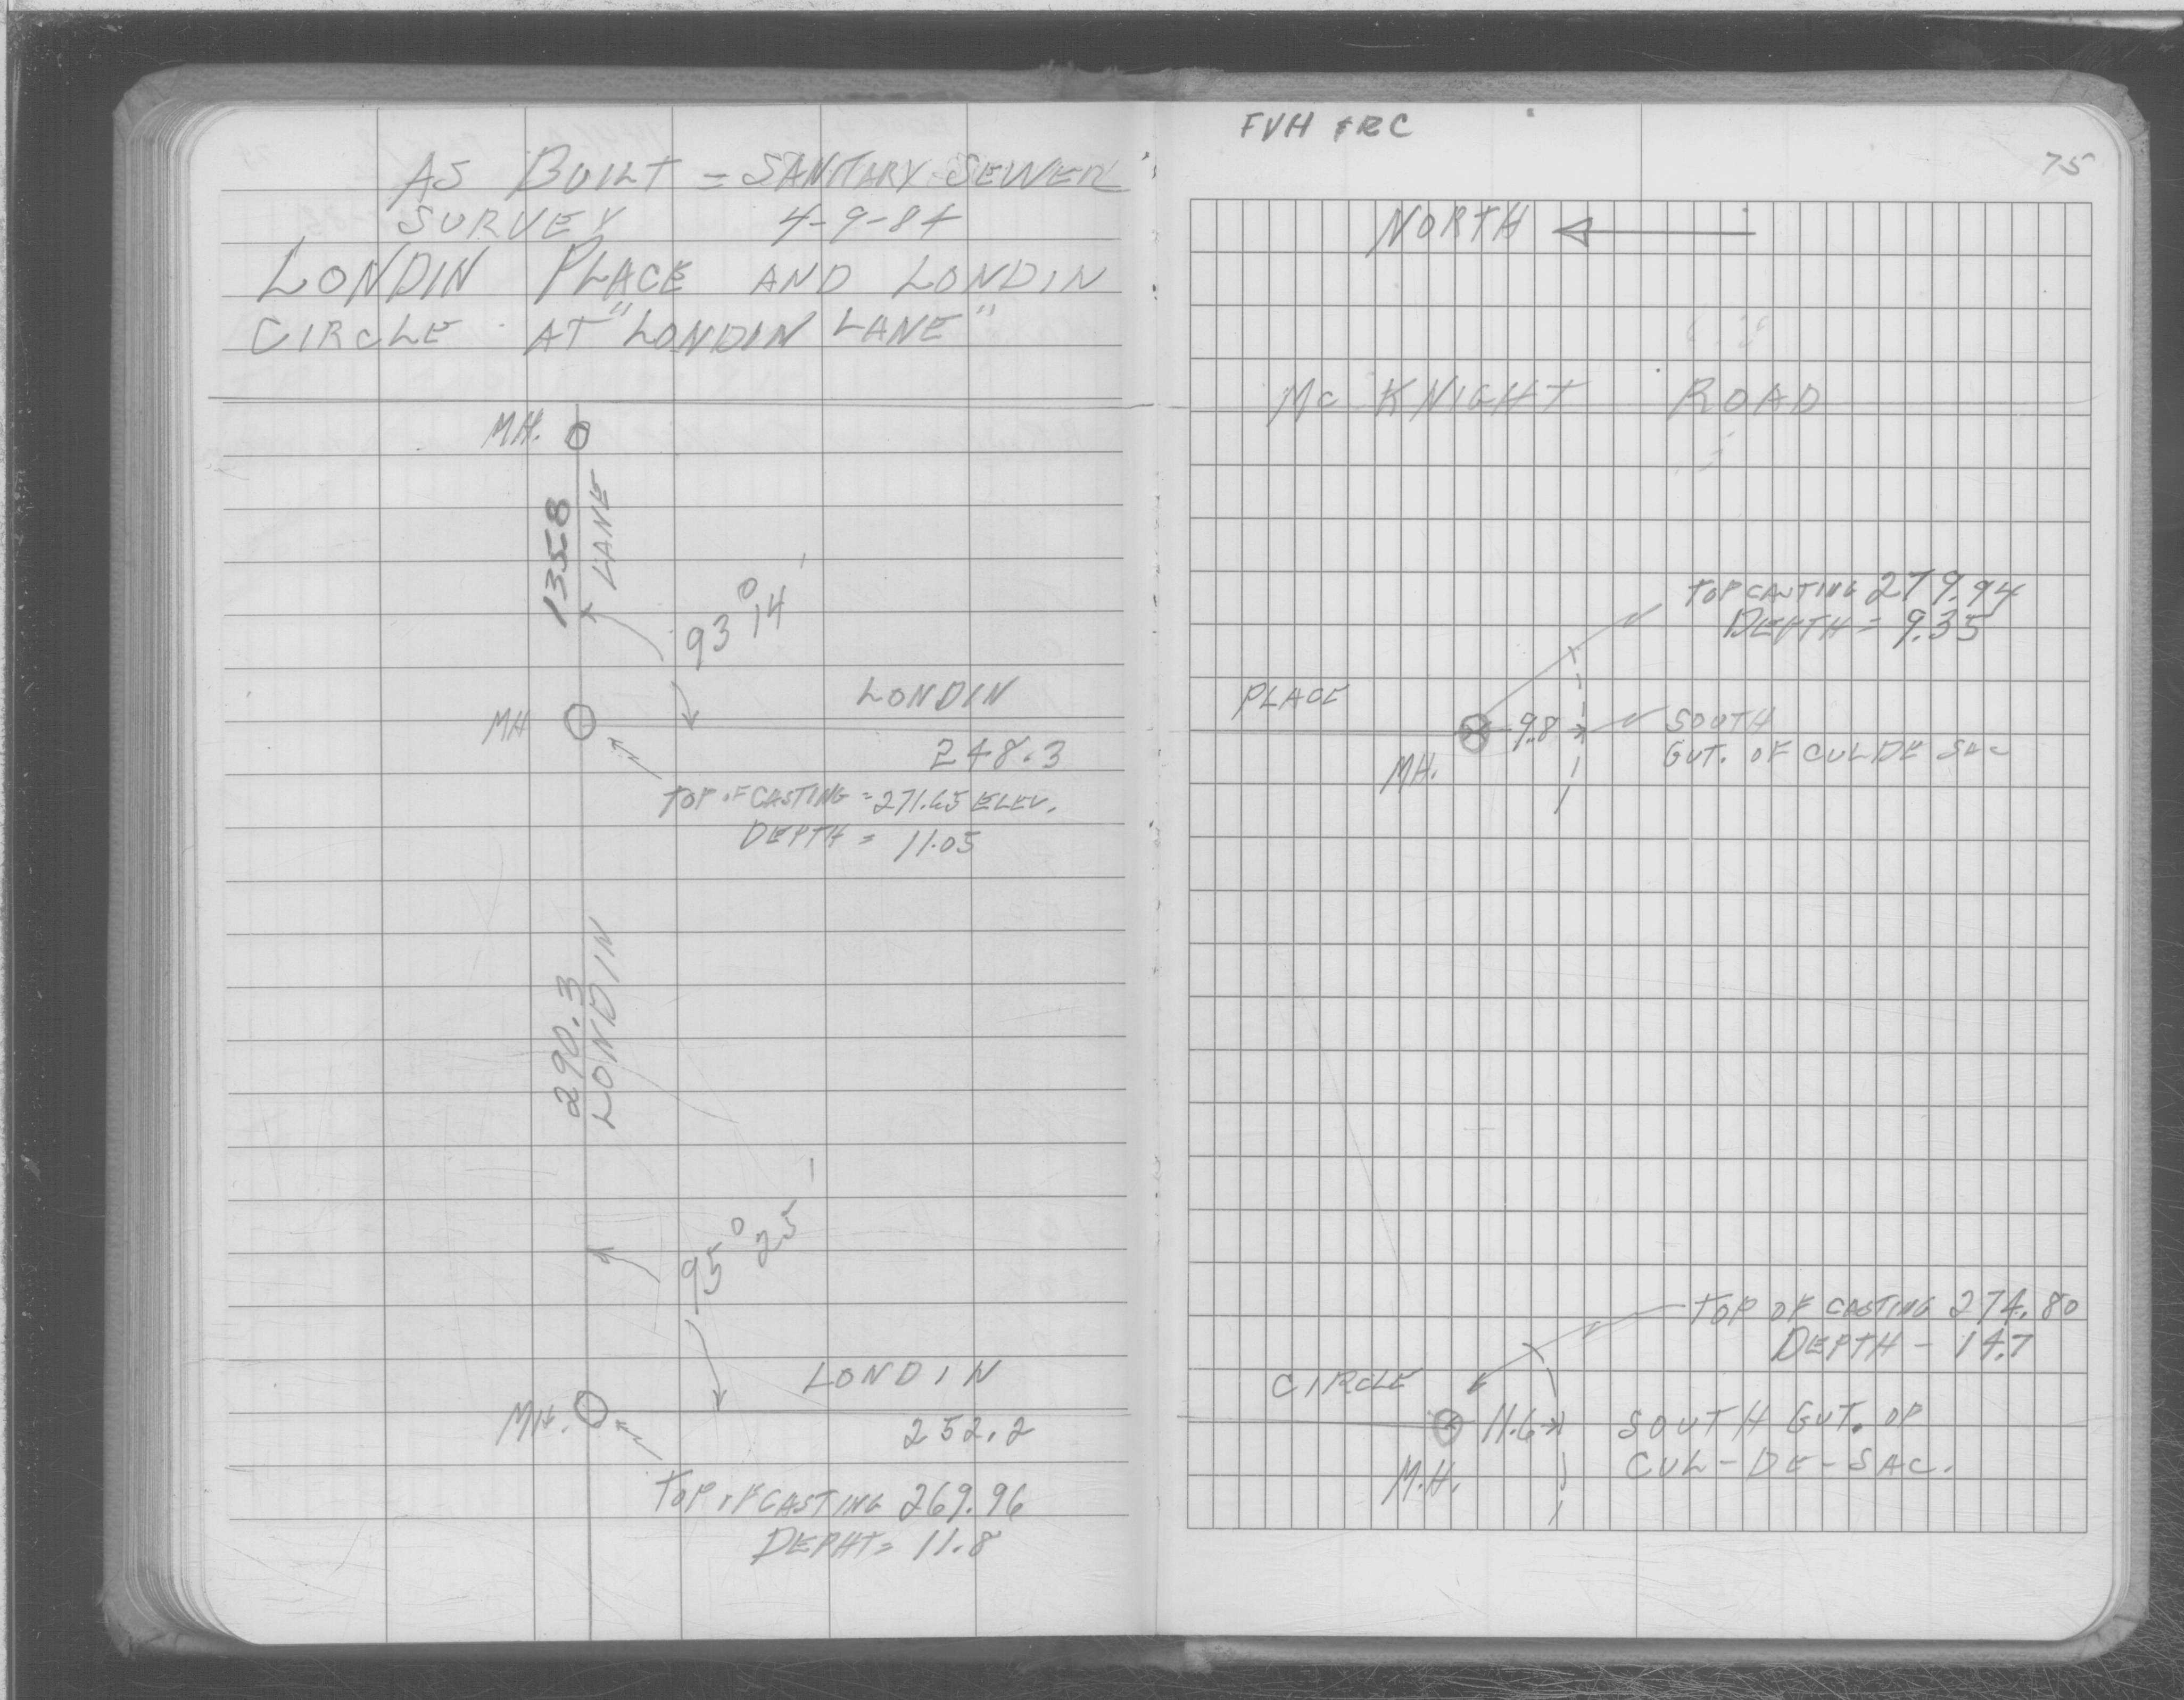 AS BUILT = SANITARY SEWER
SURVEY 4-9-84
LONDIN PLACE AND LONDIN
CIRCLE AT "LONDIN LANE"
MH.
135.8
LANE
93°14'
MH
LONDIN
248.3
TOP OF CASTING = 271.65 ELEV.
DEPTH = 11.05
290.3
LONDIN
95°25'
MH.
LONDIN
252.2
TOP OF CASTING 269.96
DEPHT = 11.8
FVH & RC
75
NORTH
Mc KNIGHT ROAD
TOP CASTING 279.94
DEPTH = 9.35
PLACE
9.8
SOUTH
GUT. OF CULDE SAC
MH.
TOP OF CASTING 274.80
DEPTH - 14.7
CIRCLE
11.6
SOUTH GUT. OF
CUL-DE-SAC.
M.H.